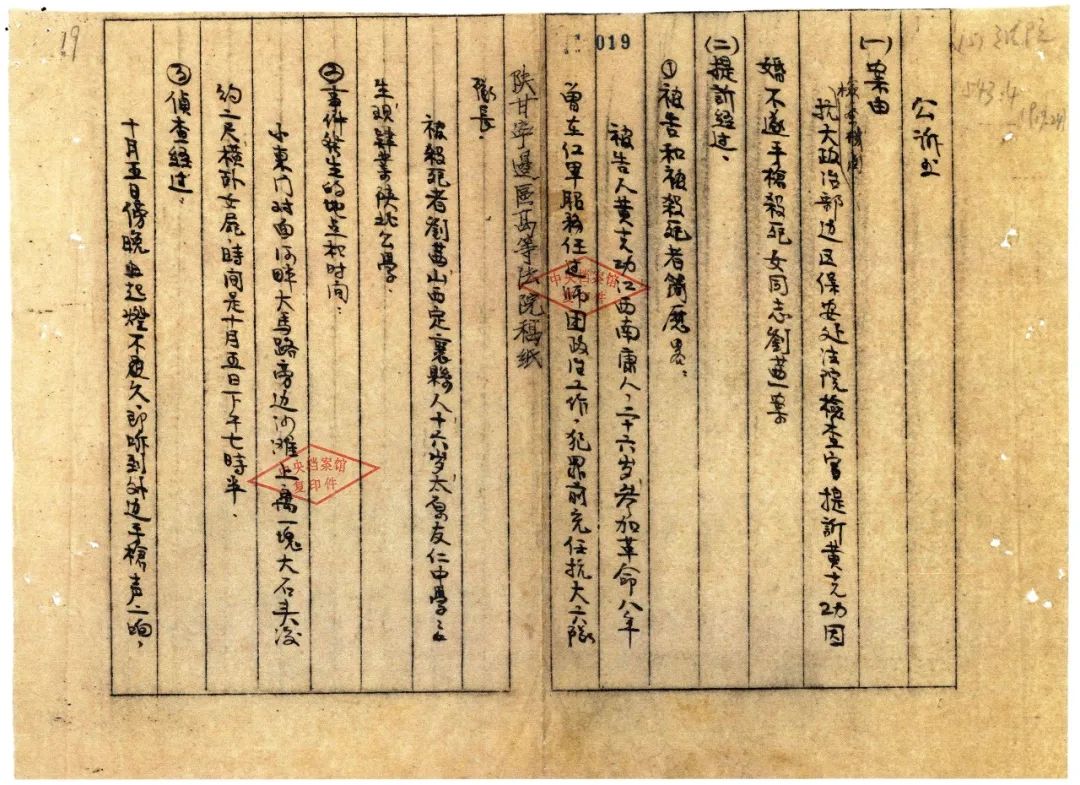 019
公诉书
(一)案由
检查机关
抗大政治部边区保安处法院检查官提訴黄克功因
婚不遂手槍殺死女同志劉茜一案
(二)提訴经过、
①被告和被殺死者简歷畧：
被告人黄克功江西南康人，二十六岁参加革命八年
曾在红軍服務任过师团政治工作，犯罪前充任抗大六隊
陕甘寧邊區高等法院稿纸
隊長、
被殺死者劉茜山西定襄縣人十六岁太原友仁中學
生现肄業陕北公學、
②事件發生的地点和时间：
小東门对面河畔大马路旁边沙滩上离一塊大石头
约二尺横卧女屍，時间是十月五日下午七時半、
③偵查经过：
十月五日傍晚点起燈不更久，即听到外边手槍声二响，
中央档案馆
复印件
中央档案馆
复印件
19
543.4